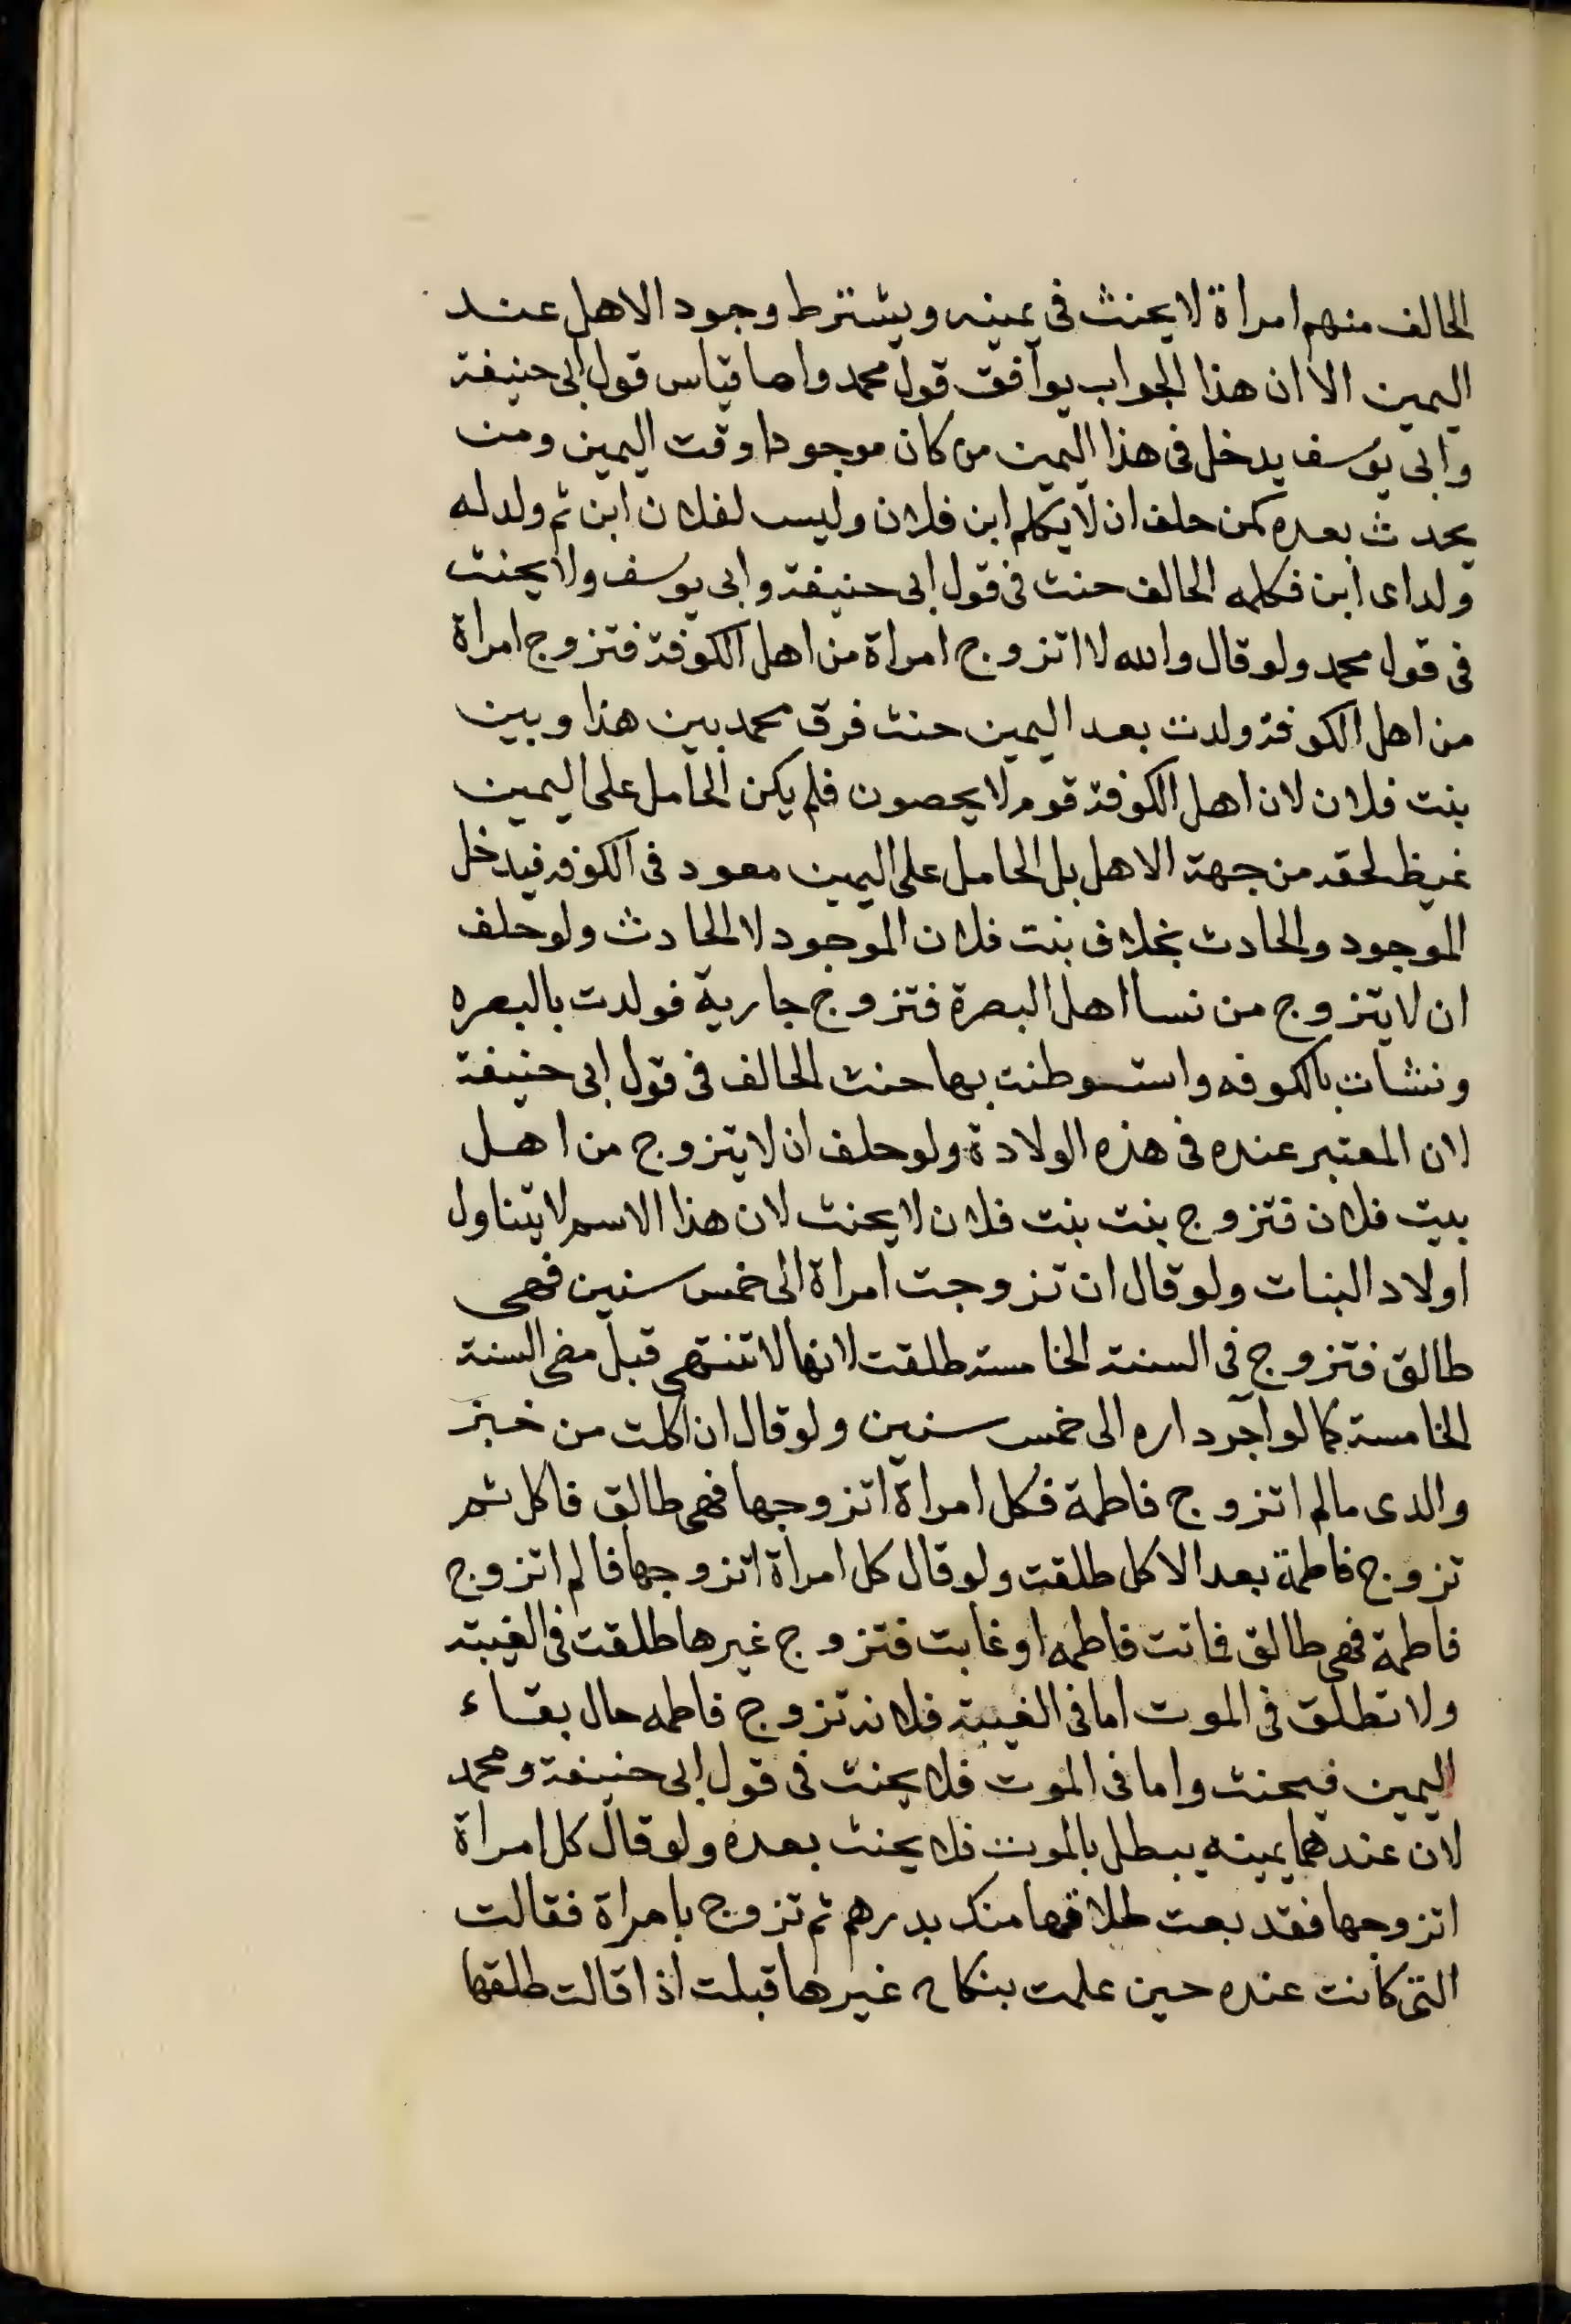 الحالف منهم امراة لا يحنث فى يمينه ويشترط وجود الاهل عند
اليمين الا ان هذا الجواب يوافق قول محمد واما قياس قول ابى حنيفة
وابى يوسف يدخل فى هذا اليمين من كان موجودا وقت اليمين ومن
يحدث بعده كمن حلف ان لا يكلم ابن فلان وليس لفلان ابن ثم ولد له
ولد اى ابن فكلمه الحالف حنث فى قول ابى حنيفة وابى يوسف ولا يحنث
فى قول محمد ولو قال والله لا اتزوج امراة من اهل الكوفة فتزوج امراة
من اهل الكوفة ولدت بعد اليمين حنث فرق محمد بين هذا وبين
بنت فلان لان اهل الكوفة قوم لا يحصون فلم يكن الحامل على اليمين
غيظ لحقه من جهة الاهل بل الحامل على اليمين معود فى الكوفه فيدخل
الموجود والحادث بخلاف بنت فلان الموجود لا الحادث ولو حلف
ان لا يتزوج من نسا اهل البصرة فتزوج جارية فولدت بالبصره
ونشات بالكوفه واستوطنت بها حنث الحالف فى قول ابى حنيفة
لان المعتبر عنده فى هذه الولادة ولو حلف ان لا يتزوج من اهل
بيت فلان فتزوج بنت بنت فلان لا يحنث لان هذا الاسم لا يتناول
اولاد البنات ولو قال ان تزوجت امراة الى خمس سنين فهى
طالق فتزوج فى السنة الخامسة طلقت لانها لا تنتهى قبل مضى السنة
الخامسة كما لو آجر داره الى خمس سنين ولو قال ان اكلت من خبز
والدى مالم اتزوج فاطمة فكل امراة اتزوجها فهى طالق فاكل ثم
تزوج فاطمة بعد الاكل طلقت ولو قال كل امراة اتزوجها فالم اتزوج
فاطمة فهى طالق فماتت فاطمه او غابت فتزوج غيرها طلقت فى الغيبة
ولا تطلق فى الموت اما فى الغيبة فلانه تزوج فاطمه حال بقاء
اليمين فيحنث واما فى الموت فلا يحنث فى قول ابى حنيفة ومحمد
لان عندهما يمينه يبطل بالموت فلا يحنث بعده ولو قال كل امراة
اتزوجها فقد بعت طلاقها منك بدرهم ثم تزوج بامراة فقالت
التى كانت عنده حين علمت بنكاح غيرها قبلت اذا قالت طلقها